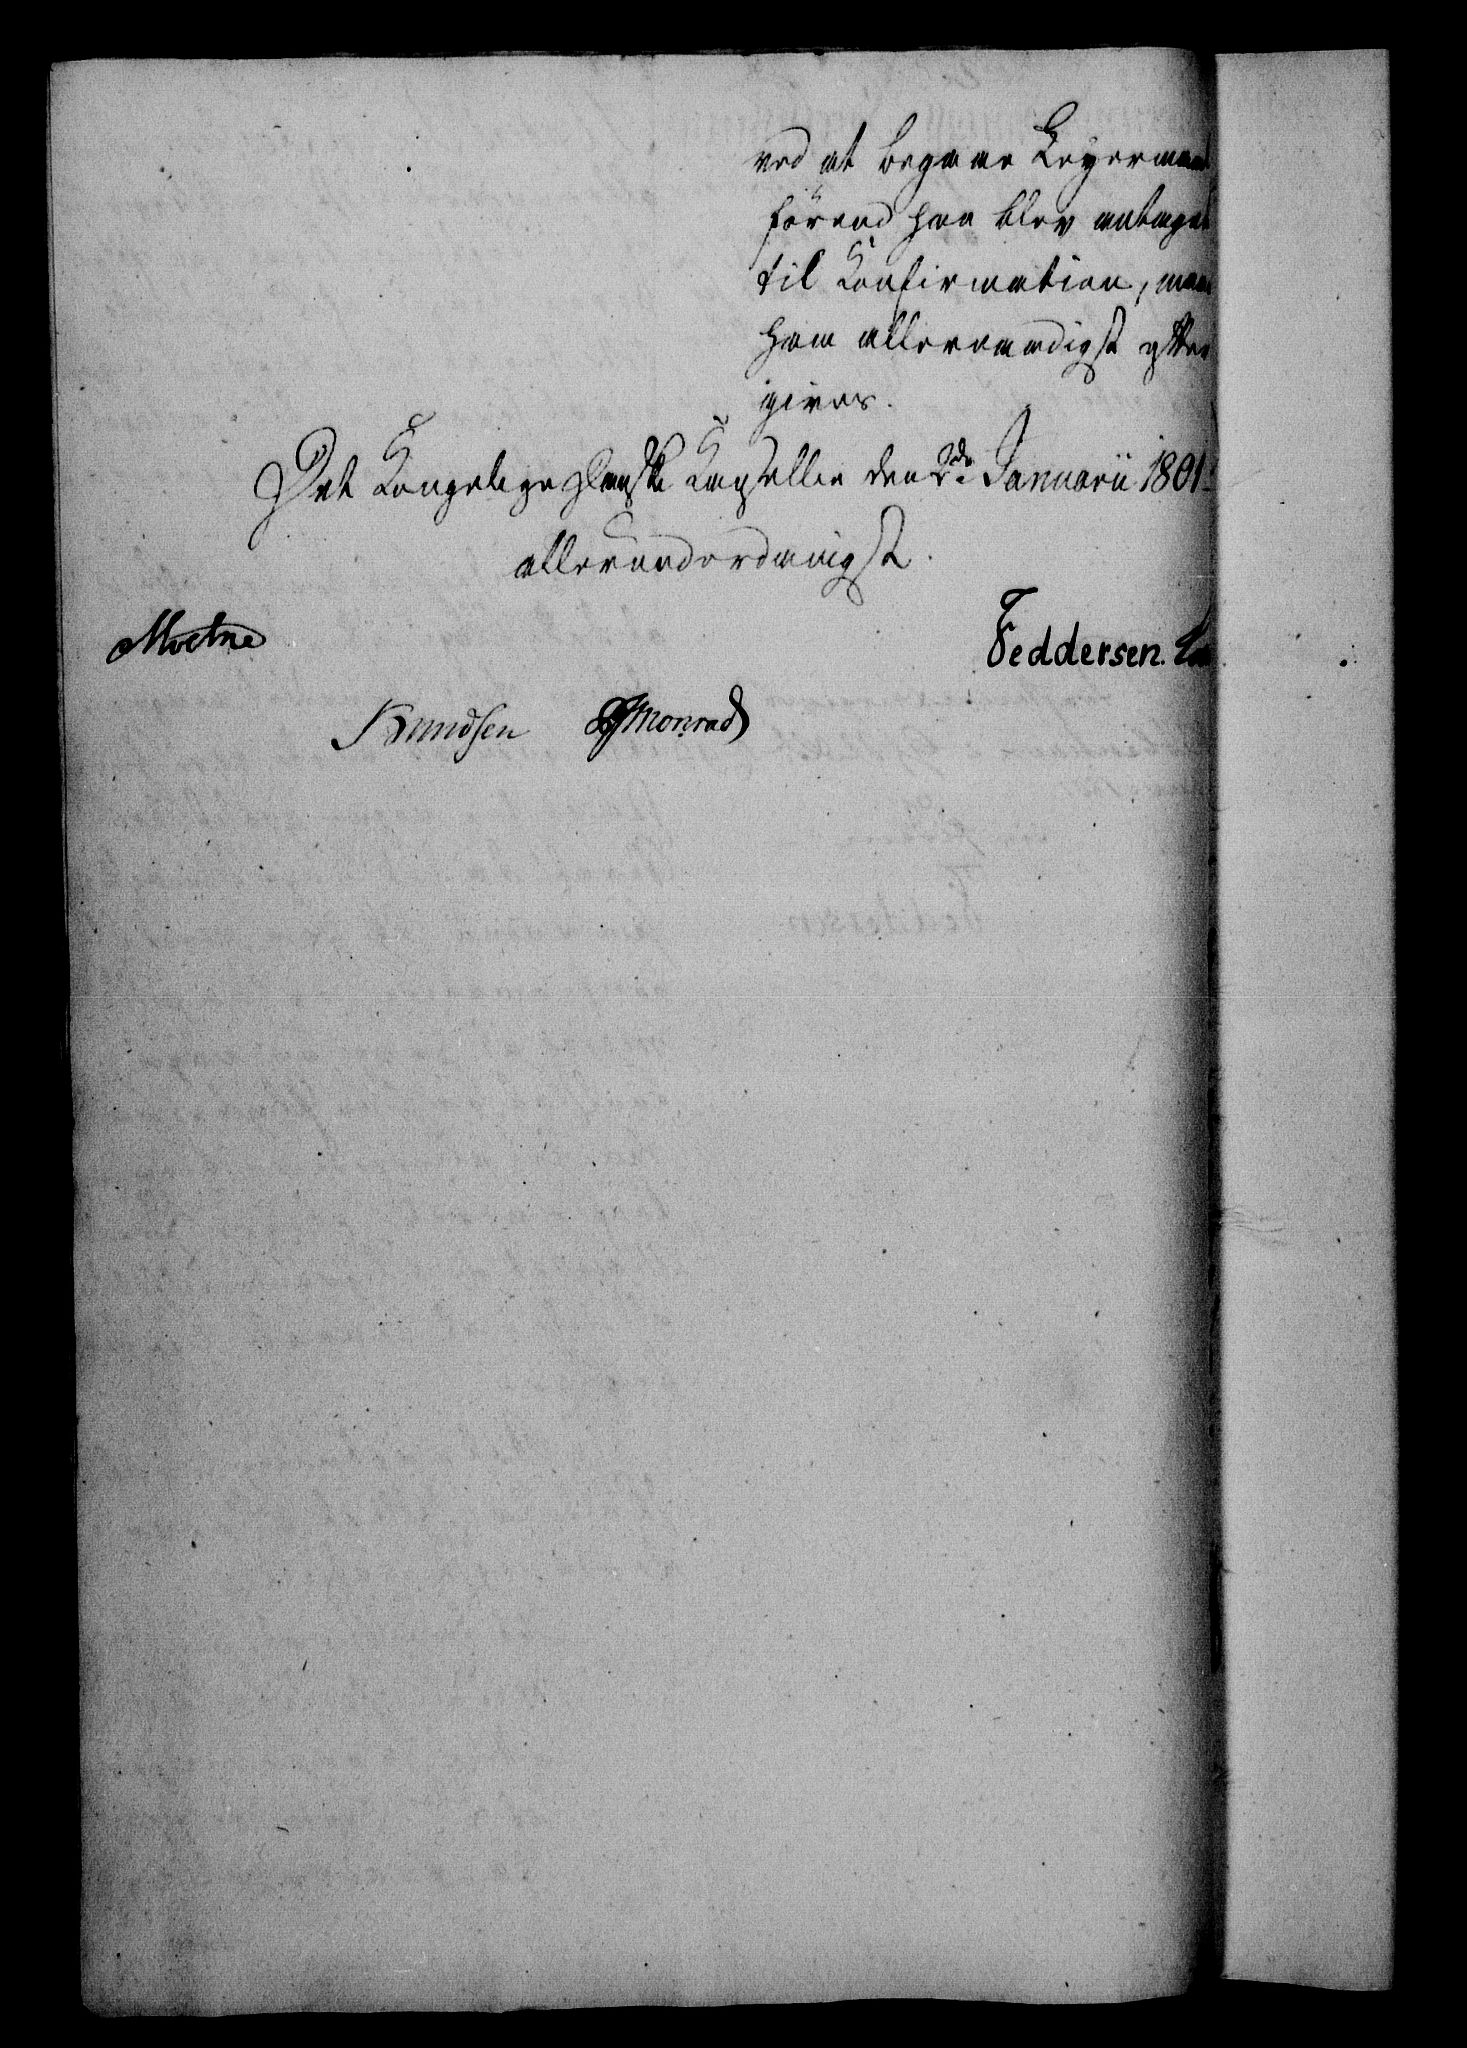 ved at begaae Leyermaal
förend han blev antaget
til Confirmation, maae
ham allernaadigst efter
gives.
Det Kongelige Danske Cancellie den 2de Januarii 1801
allerunderdanigst.
Moltke
Feddersen.
Knudsen Monrad